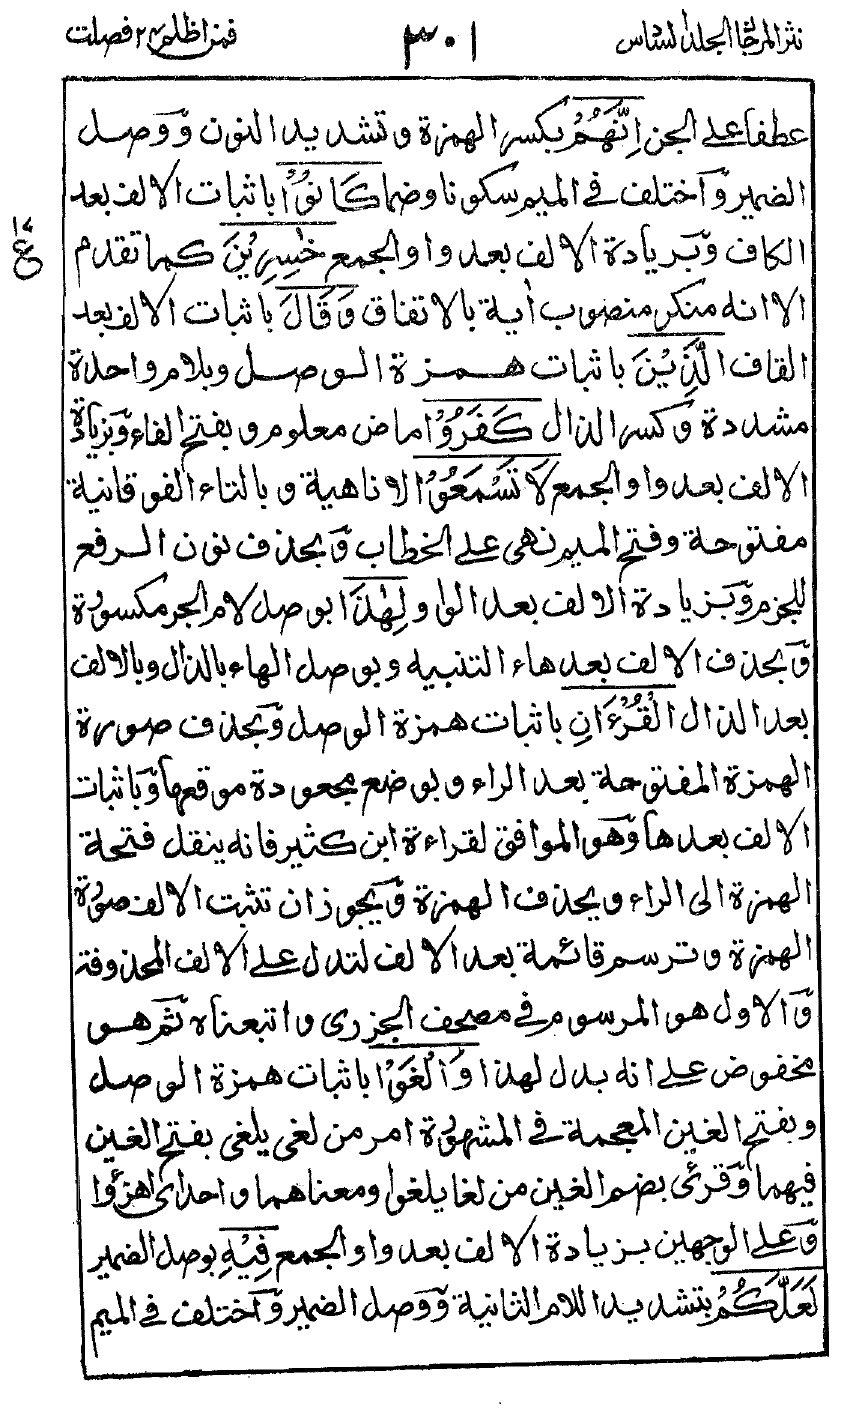 نثر المرجان الجلد السادس ٣٠١ فمن اظلم ٢٤ فصلت
عطفا على الجن اِنَّهُمْ بكسر الهمزة وتشديد النون وَوصل
الضمير وَاختلف فى الميم سكونا وضما كَانُوْا باثبات الالف بعد
الكاف وَبزيادة الالف بعد واو الجمع خٰسِرِيْنَ كما تقدم
الا انه منكر منصوب اٰية بالاتفاق وَقَالَ باثبات الالف بعد
القاف الَّذِيْنَ باثبات همزة الوصل وبلام واحدة
مشددة وَكسر الذال كَفَرُوْا ماض معلوم وبفتح الفاء وَبزيادة
الالف بعد واو الجمع لَا تَسْمَعُوْا لا ناهية وبالتاء الفوقانية
مفتوحة وفتح الميم نهى على الخطاب وَبحذف نون الرفع
للجزم وَبزيادة الالف بعد الواو لِهٰذَا بوصل لام الجر مكسورة
وَبحذف الالف بعد هاء التنبيه وبوصل الهاء بالذال وبالالف
بعد الذال الْقُرْءَانِ باثبات همزة الوصل وَبحذف صورة
الهمزة المفتوحة بعد الراء وبوضع مجعودة موقعها وَباثبات
الالف بعدها وَهو الموافق لقراءة ابن كثير فانه ينقل فتحة
الهمزة الى الراء ويحذف الهمزة وَيجوز ان تثبت الالف صورة
الهمزة وترسم قائمة بعد الالف لتدل على الالف المحذوفة
وَالاول هو المرسوم فى مصحف الجزرى واتبعناه ثم هو
مخفوض على انه بدل لهذا وَالْغَوْا باثبات همزة الوصل
وبفتح الغين المعجمة فى المشهورة امر من لغى يلغى بفتح الغين
فيهما وَقرئ بضم الغين من لغا يلغوا ومعناهما واحد اى اهزءوا
وَعلى الوجهين بزيادة الالف بعد واو الجمع فِيْهِ بوصل الضمير
لَعَلَّكُمْ بتشديد اللام الثانية وَوصل الضمير وَاختلف فى الميم